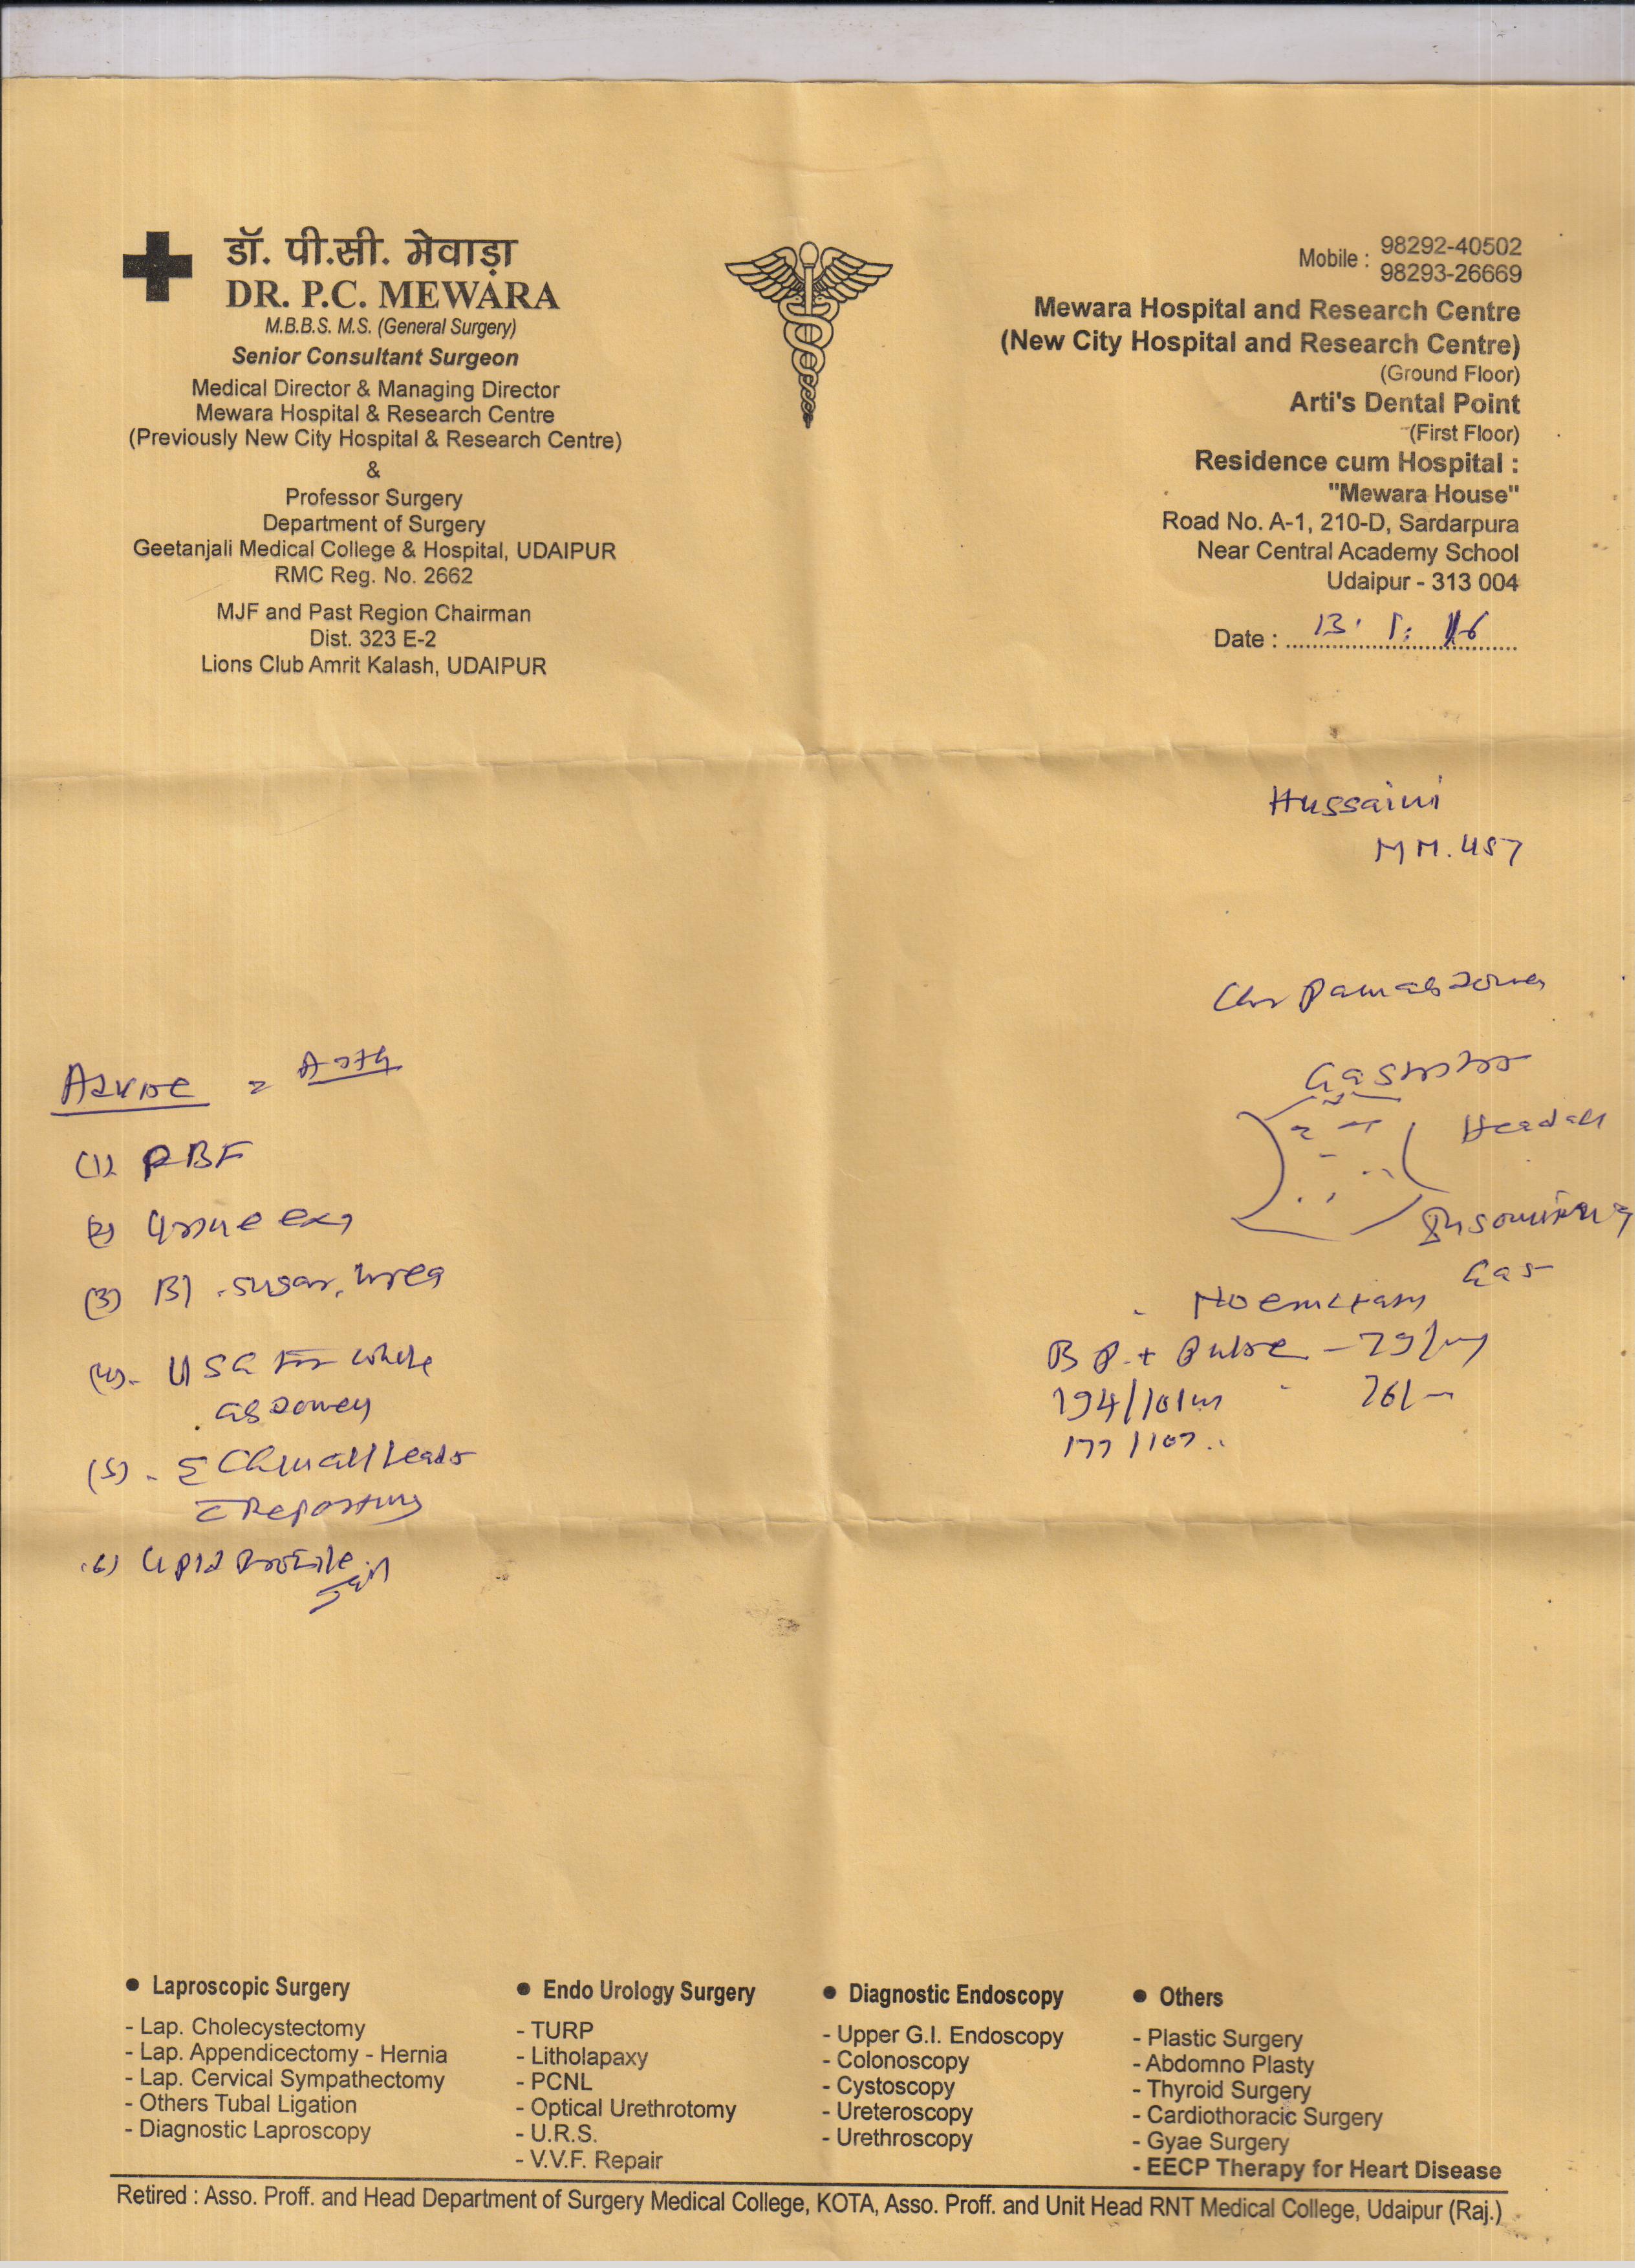 डॉ. पी.सी. मेवाड़ा
DR. P.C. MEWARA
M.B.B.S. M.S. (General Surgery)
Senior Consultant Surgeon
Medical Director & Managing Director
Mewara Hospital & Research Centre
(Previously New City Hospital & Research Centre)
&
Professor Surgery
Department of Surgery
Geetanjali Medical College & Hospital, UDAIPUR
RMC Reg. No. 2662
MJF and Past Region Chairman
Dist. 323 E-2
Lions Club Amrit Kalash, UDAIPUR
Mobile : 98292-40502
98293-26669
Mewara Hospital and Research Centre
(New City Hospital and Research Centre)
(Ground Floor)
Arti's Dental Point
(First Floor)
Residence cum Hospital :
"Mewara House"
Road No. A-1, 210-D, Sardarpura
Near Central Academy School
Udaipur - 313 004
Date :
Hussaini
Gas
BP + Pulse
Advice
(1) PBF
(2)
(3) Bl. sugar, urea
(4) USG for whole
abdomen
(5) all Leads
Reporting
(6) Lipid Profile
• Laproscopic Surgery
- Lap. Cholecystectomy
- Lap. Appendicectomy - Hernia
- Lap. Cervical Sympathectomy
- Others Tubal Ligation
- Diagnostic Laproscopy
• Endo Urology Surgery
- TURP
- Litholapaxy
- PCNL
- Optical Urethrotomy
- U.R.S.
- V.V.F. Repair
• Diagnostic Endoscopy
- Upper G.I. Endoscopy
- Colonoscopy
- Cystoscopy
- Ureteroscopy
- Urethroscopy
• Others
- Plastic Surgery
- Abdomno Plasty
- Thyroid Surgery
- Cardiothoracic Surgery
- Gyae Surgery
- EECP Therapy for Heart Disease
Retired : Asso. Proff. and Head Department of Surgery Medical College, KOTA, Asso. Proff. and Unit Head RNT Medical College, Udaipur (Raj.)